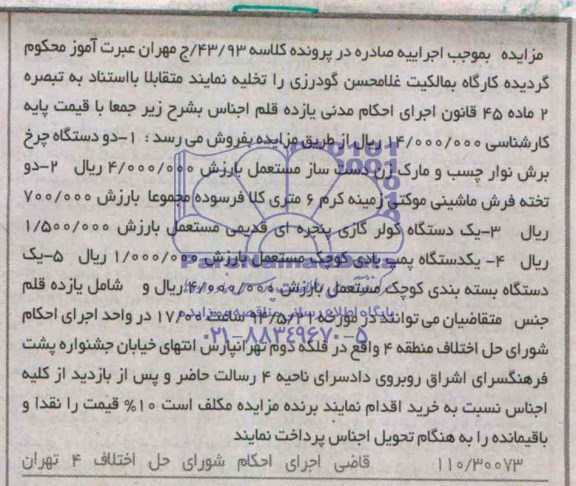 مزایده بموجب اجراییه صادره در پرونده کلاسه ۴۳/۹۳/ج مهران عبرت آموز محکوم
گردیده کارگاه بمالکیت غلامحسن گودرزی را تخلیه نمایند متقابلا بااستناد به تبصره
۲ ماده ۴۵ قانون اجرای احکام مدنی یازده قلم اجناس بشرح زیر جمعا با قیمت پایه
کارشناسی ۱۴/۰۰۰/۰۰۰ ریال از طریق مزایده بفروش می رسد : ۱-دو دستگاه چرخ
برش نوار چسب و مارک زن دست ساز مستعمل بارزش ۴/۰۰۰/۰۰۰ ریال ۲-دو
تخته فرش ماشینی موکتی زمینه کرم ۶ متری کلا فرسوده مجموعا بارزش ۷۰۰/۰۰۰
ریال ۳-یک دستگاه کولر گازی پنجره ای قدیمی مستعمل بارزش ۱/۵۰۰/۰۰۰
ریال ۴- یکدستگاه پمپ بادی کوچک مستعمل بارزش ۱/۰۰۰/۰۰۰ ریال ۵-یک
دستگاه بسته بندی کوچک مستعمل بارزش ۴/۰۰۰/۰۰۰ ریال و شامل یازده قلم
جنس متقاضیان می توانند در مورخه ساعت ۱۷/۰۰ در واحد اجرای احکام
شورای حل اختلاف منطقه ۴ واقع در فلکه دوم تهرانپارس انتهای خیابان جشنواره پشت
فرهنگسرای اشراق روبروی دادسرای ناحیه ۴ رسالت حاضر و پس از بازدید از کلیه
اجناس نسبت به خرید اقدام نمایند برنده مزایده مکلف است ۱۰% قیمت را نقدا و
باقیمانده را به هنگام تحویل اجناس پرداخت نمایند
۱۱۰/۳۰۰۷۳ قاضی اجرای احکام شورای حل اختلاف ۴ تهران
ParsNamadData
پایگاه اطلاع رسانی مناقصه و مزایده
۰۲۱-۸۸۳۴۹۶۷۰-۵